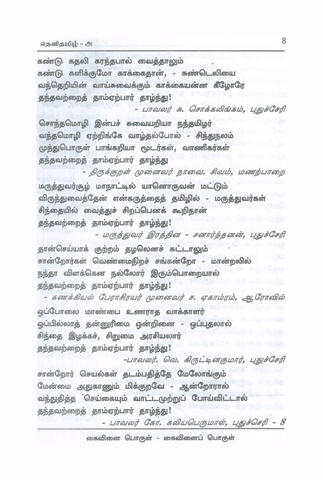 தெனிதமிழ் - அ 8
கண்டு கதலி கரந்தபால் வைத்தாலும்
கண்டு களிக்குமோ காக்கைதான், - சுண்டெலியை
வந்தெறியின் வாய்சுவைக்கும் காக்கையன்ன கீழோரே
தந்தவற்றைத் தாம்ஏற்பார் தாழ்ந்து!
- பாவலர் சு. சொக்கலிங்கம், புதுச்சேரி
சொந்தமொழி இன்பச் சுவையறியா நந்தமிழர்
வந்தமொழி ஏற்றிங்கே வாழ்தல்போல் - சிந்துநலம்
முந்துபொருள் பாங்கறியா மூடர்கள், வாணிகர்கள்
தந்தவற்றைத் தாம்ஏற்பார் தாழ்ந்து
- திருக்குறள் முனைவர் நாவை. சிவம், மணற்பாறை
மருத்துவர்சூழ் மாநாட்டில் யானொருவன் மட்டும்
விருந்துவைத்தேன் என்கருத்தைத் தமிழில் - மருத்துவர்கள்
சிந்தையில் வைத்துச் சிறப்பெனக் கூறிநான்
தந்தவற்றைத் தாம்ஏற்பார் தாழ்ந்து!
- மருத்துவர் இரத்தின - சனார்த்தனன், புதுச்சேரி
தான்செய்யாக் குற்றம் தழலெனச் சுட்டாலும்
சான்றோர்கள் வெண்மைநிறச் சங்கன்றோ - மான்றலில்
நந்தா விளக்கென நல்லோர் இரும்பொறையால்
தந்தவற்றைத் தாம்ஏற்பார் தாழ்ந்து!
- கணக்கியல் பேராசிரியர் முனைவர் ச. ஏகாம்ரம், ஆரோவில்
ஒப்போலை மாண்பை உணராத வாக்காளர்
ஒப்பில்லாத் தன்னுரிமை ஒன்றினை - ஒப்புதலால்
சிந்தை இழக்கச், சிறுமை அரசியலார்
தந்தவற்றைத் தாம்ஏற்பார் தாழ்ந்து!
-பாவலர். வெ. கிருட்டினகுமார், புதுச்சேரி
சான்றோர் செயல்கள் தடம்பதித்தே மேலோங்கும்
மேன்மை அதுகாணும் மிக்குறவே - ஆன்றோரால்
வந்துதித்த செய்கையும் வாட்டமுற்றுப் போய்விட்டால்
தந்தவற்றைத் தாம்ஏற்பார் தாழ்ந்து!
- பாவலர் கோ. கலியபெருமாள், புதுச்சேரி - 8
கைவினை பொருள் - கைவினைப் பொருள்